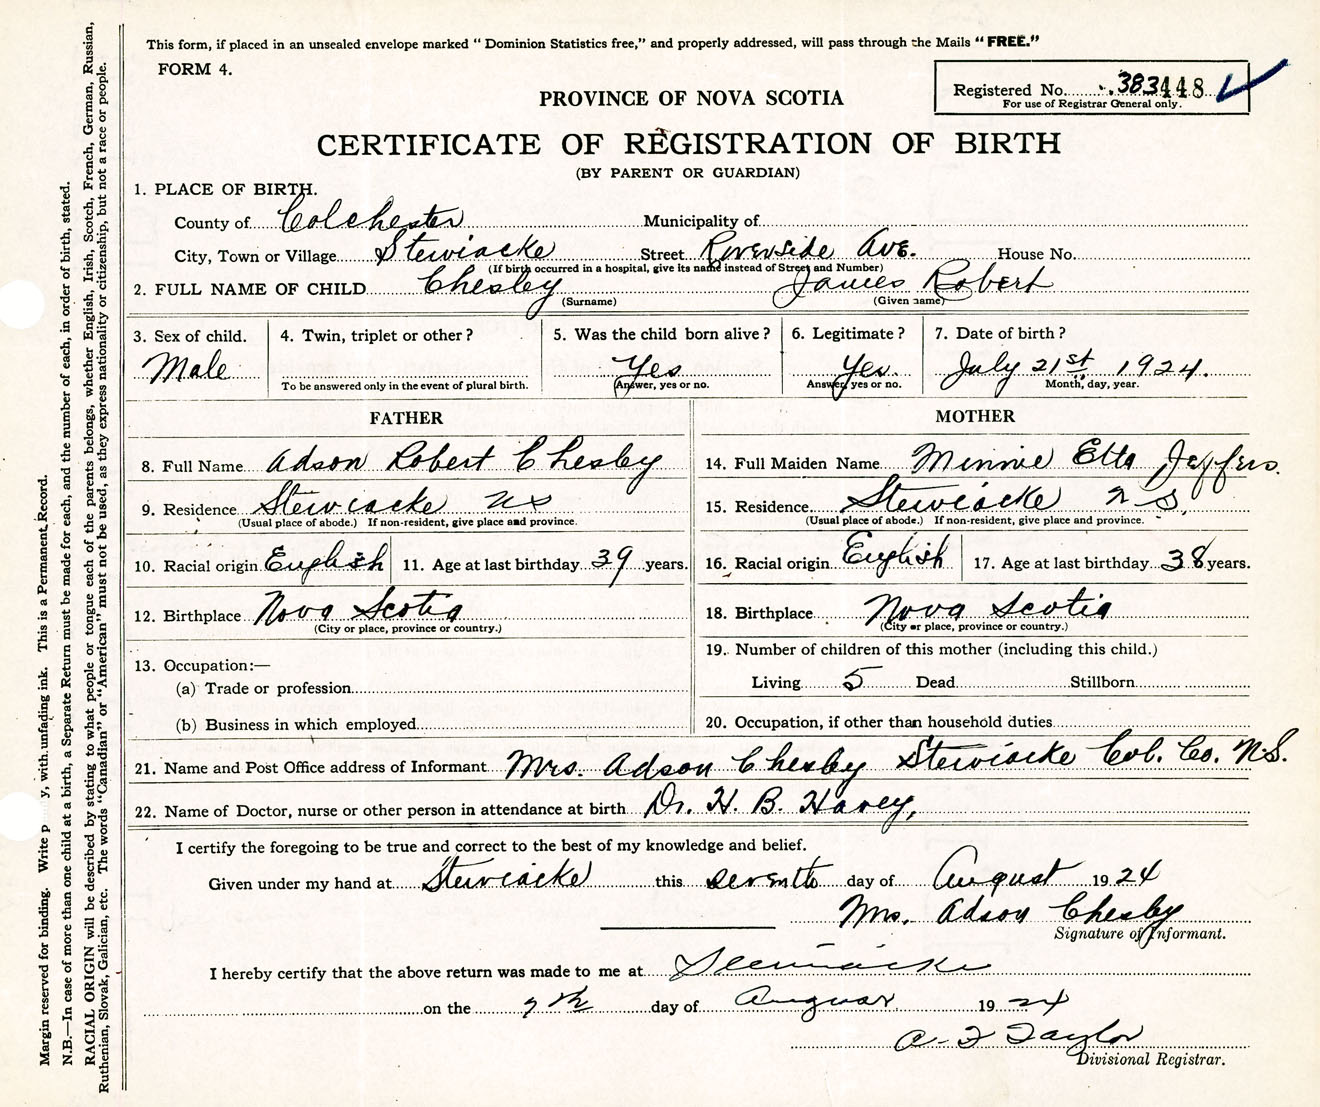 This form, if placed in an unsealed envelope marked "Dominion Statistics free," and properly addressed, will pass through the Mails "FREE."
FORM 4.
Registered No. 383448
For use of Registrar General only.
PROVINCE OF NOVA SCOTIA
CERTIFICATE OF REGISTRATION OF BIRTH
(BY PARENT OR GUARDIAN)
1. PLACE OF BIRTH.
County of Colchester Municipality of
City, Town or Village Stewiacke Street Riverside Ave. House No.
(If birth occurred in a hospital, give its name instead of Street and Number)
2. FULL NAME OF CHILD Chesley James Robert
(Surname) (Given name)
3. Sex of child. Male
4. Twin, triplet or other?
To be answered only in the event of plural birth.
5. Was the child born alive? Yes
(Answer, yes or no.
6. Legitimate? Yes.
Answer, yes or no.
7. Date of birth? July 21st 1924.
Month, day, year.
FATHER
8. Full Name Adson Robert Chesley
9. Residence Stewiacke NS
(Usual place of abode.) If non-resident, give place and province.
10. Racial origin English 11. Age at last birthday 39 years.
12. Birthplace Nova Scotia
(City or place, province or country.)
13. Occupation:—
(a) Trade or profession
(b) Business in which employed
MOTHER
14. Full Maiden Name Minnie Etta Jeffers.
15. Residence Stewiacke N S.
(Usual place of abode.) If non-resident, give place and province.
16. Racial origin English 17. Age at last birthday 38 years.
18. Birthplace Nova Scotia
(City or place, province or country.)
19. Number of children of this mother (including this child.)
Living 5 Dead Stillborn
20. Occupation, if other than household duties
21. Name and Post Office address of Informant Mrs. Adson Chesley Stewiacke Col. Co. N.S.
22. Name of Doctor, nurse or other person in attendance at birth Dr. H. B. Havey,
I certify the foregoing to be true and correct to the best of my knowledge and belief.
Given under my hand at Stewiacke this seventh day of August 1924
Mrs. Adson Chesley
Signature of Informant.
I hereby certify that the above return was made to me at Stewiacke
on the 7th day of August 1924
A F Taylor
Divisional Registrar.
Margin reserved for binding. Write with unfading ink. This is a Permanent Record.
N.B.—In case of more than one child at a birth, a Separate Return must be made for each, and the number of each, in order of birth, stated.
RACIAL ORIGIN will be described by stating to what people or tongue each of the parents belongs, whether English, Irish, Scotch, French, German, Russian,
Ruthenian, Slovak, Galician, etc. The words "Canadian" or "American" must not be used, as they express nationality or citizenship, but not a race or people.